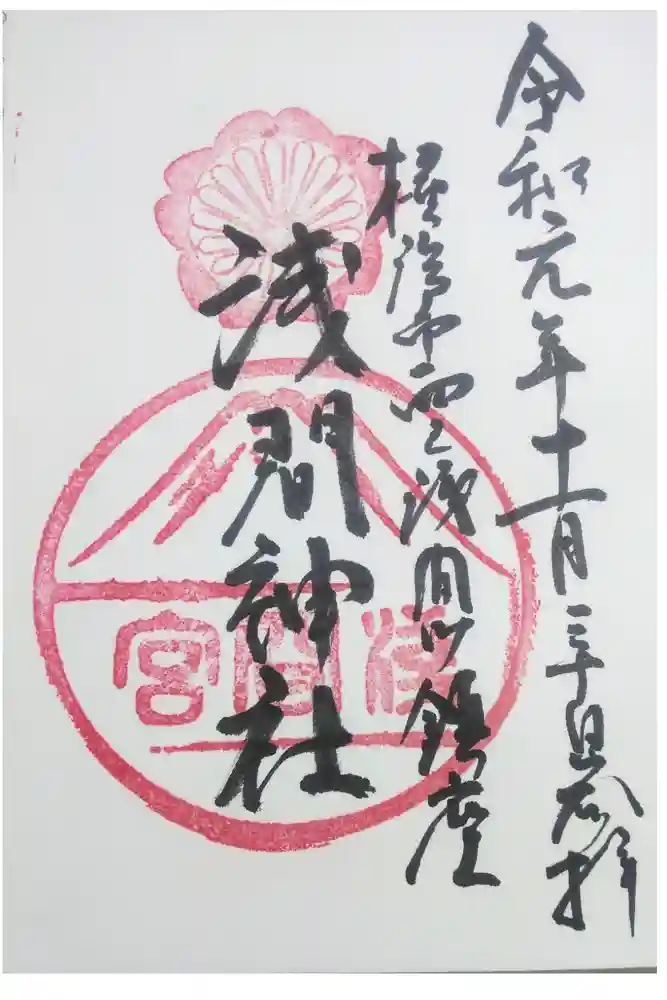 令和元年十一月三十日参拝
横濱市西区浅間町鎮座
浅間神社
淺間宮